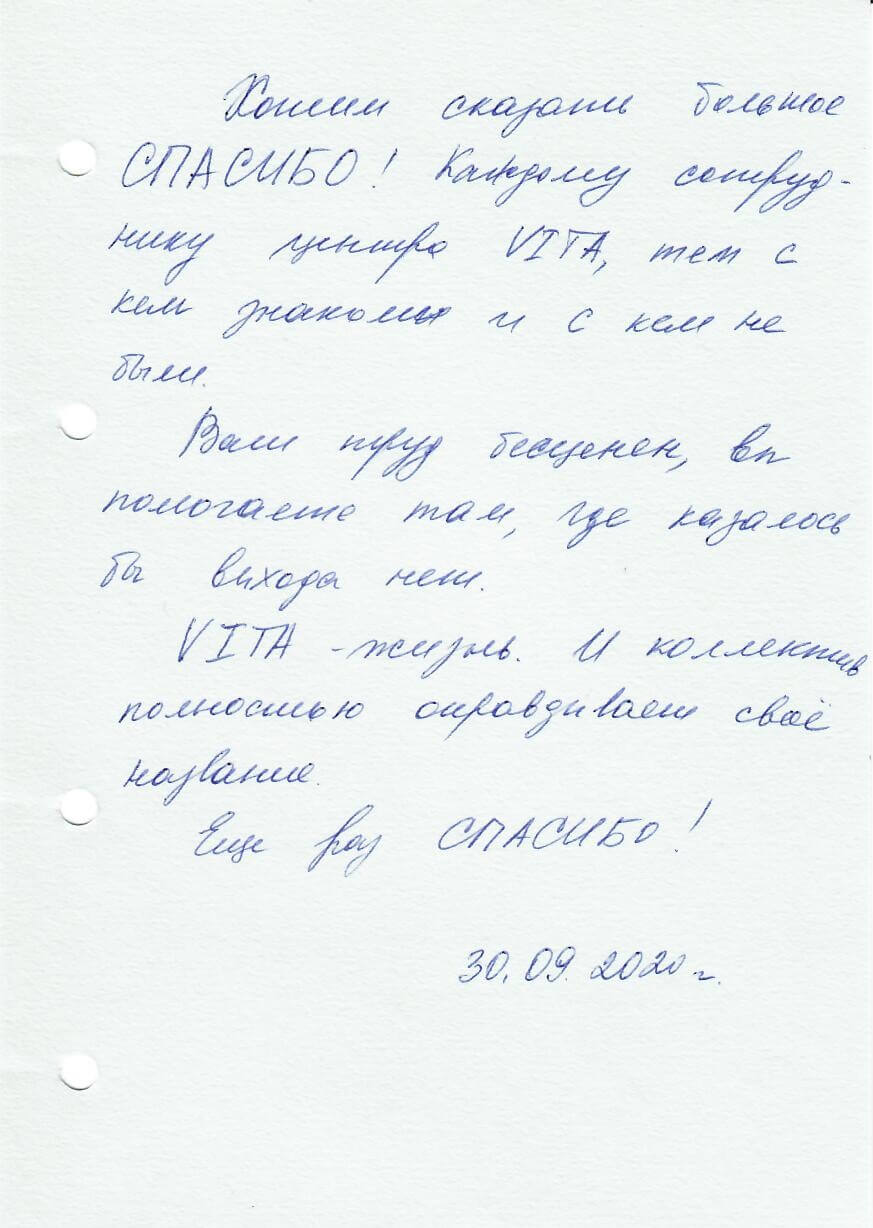 Хотим сказать большое
СПАСИБО! Каждому сотруд-
нику центра VITA, тем с
кем знакомы и с кем не
были.
Ваш труд бесценен, вы
помогаете там, где казалось
бы выхода нет.
VITA - жизнь. И коллектив
полностью оправдивает своё
название.
Еще раз СПАСИБО!
30.09.2020 г.